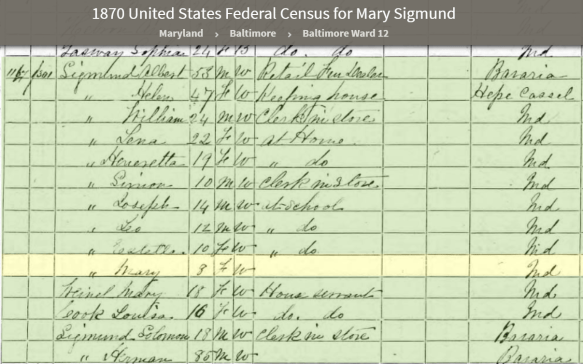 1870 United States Federal Census for Mary Sigmund
Maryland › Baltimore › Baltimore Ward 12
Sophia 24 F B do. do Md
1167 1301 Sigmund Albert 53 M W Retail Bavaria
" Helen 47 F W Keeping house Hesse Cassel
" William 24 M W Clerk in store Md
" Lena 22 F W at Home Md
" Henrietta 19 F W " do Md
" Simon 10 M W Clerk in Store Md
" Joseph 14 M W at School Md
" Leo 12 M W " do Md
" 10 F W " do Md
" Mary 8 F W Md
Mary 18 F W House servant Md
Cook Louisa 16 F W do. do Md
Sigmund Solomon 18 M W Clerk in store Bavaria
" Herman M W Bavaria